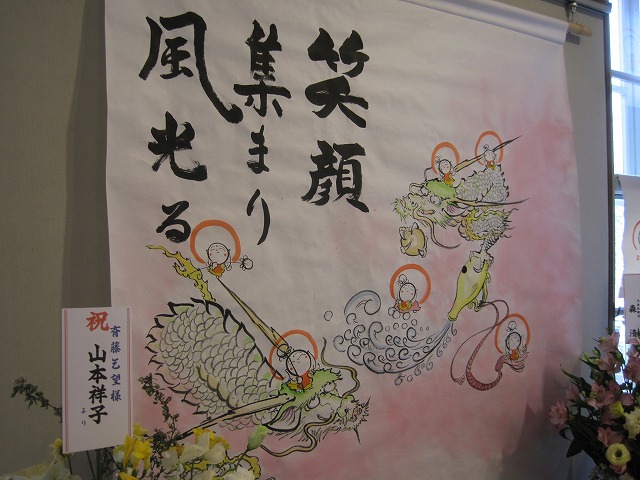 笑顔
集まり
風光る
祝
斉藤乞望様
山本祥子
より